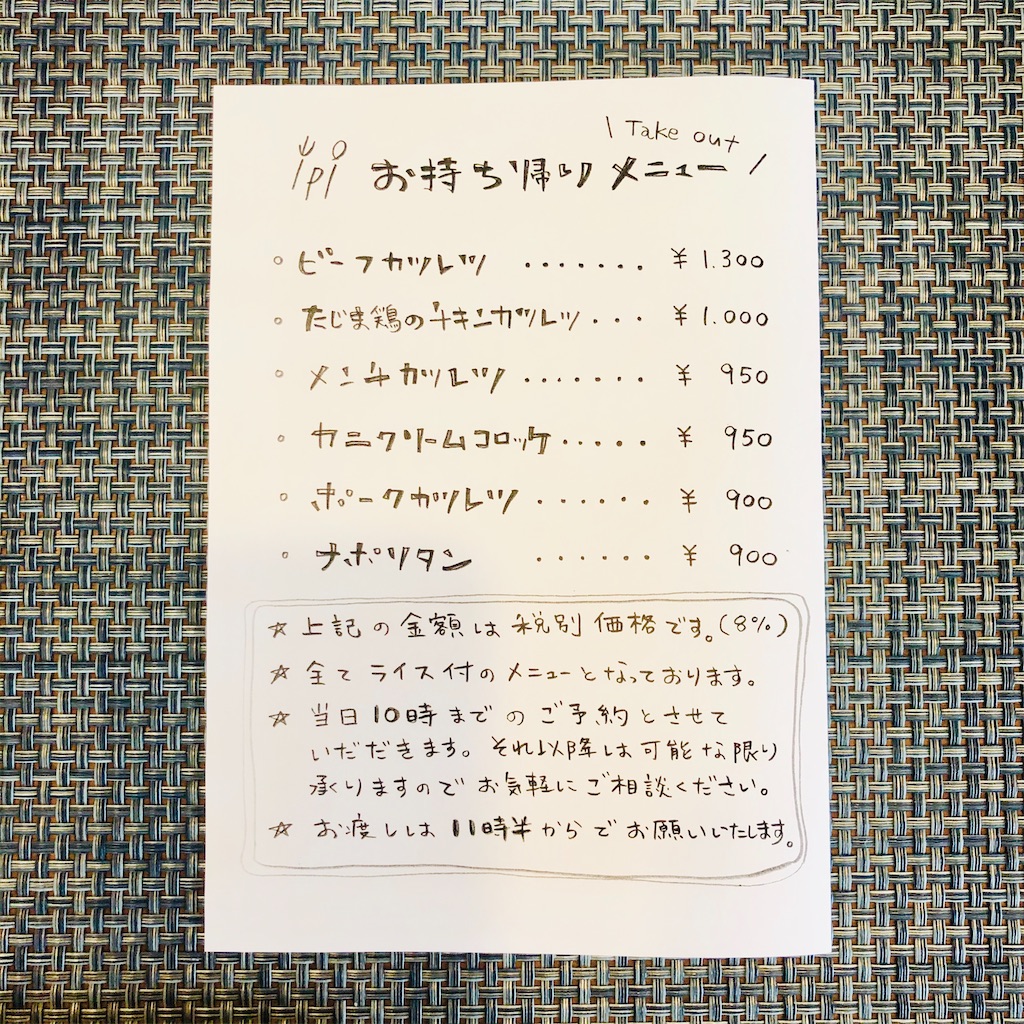 \ Take out /
ipi お持ち帰りメニュー
○ ビーフカツレツ ....... ¥1.300
○ たじま鶏のチキンカツレツ... ¥1.000
○ メンチカツレツ ....... ¥ 950
○ カニクリームコロッケ..... ¥ 950
○ ポークカツレツ ...... ¥ 900
○ ナポリタン ...... ¥ 900
☆ 上記の金額は税別価格です。(8%)
☆ 全てライス付のメニューとなっております。
☆ 当日10時までのご予約とさせて
いただきます。それ以降は可能な限り
承りますのでお気軽にご相談ください。
☆ お渡しは11時半からでお願いいたします。